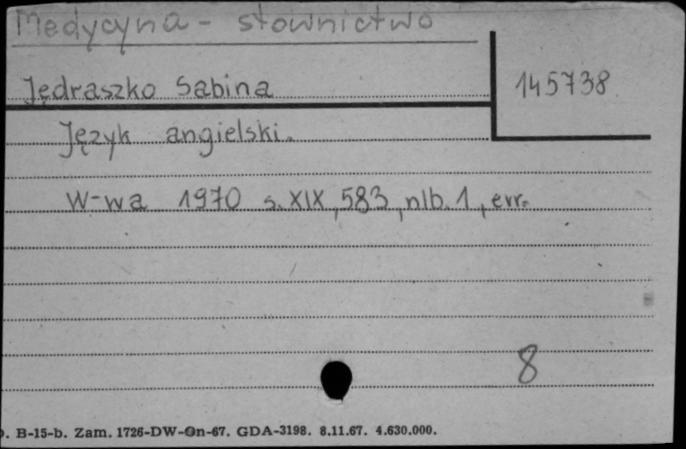 Medycyna - słownictwo
Jędraszko Sabina
145738
Język angielski.
W-wa 1970 s. XIX, 583, nlb. 1, err.
8
. B-15-b. Zam. 1726-DW-On-67. GDA-3198. 8.11.67. 4.630.000.